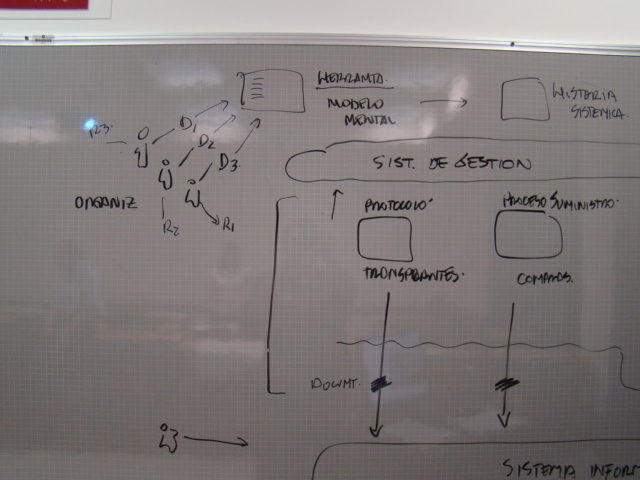 HERRAMTA.
MODELO
MENTAL
HISTERIA
SISTEMICA.
R3.
D1
D2
D3.
ORGANIZ
R2
R1
SIST. DE GESTION
PROTOCOLO
PROCESO SUMINISTRO.
TRANSPLANTES.
COMPRAS.
DOCUMT.
SISTEMA INFORM